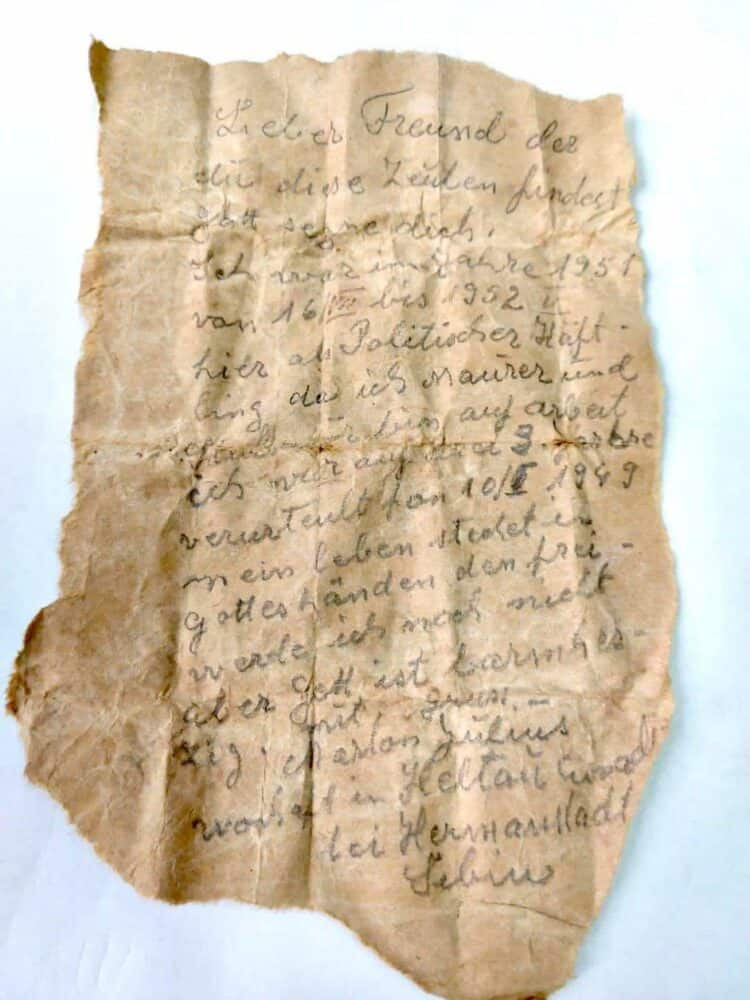 Lieber Freund der
du diese Zeulen fundest
Gott segne dich.
Ich war im Jahre 1951
von 16/VII bis 1952 II
hier als Politischer Häft-
ling da ich Maurer und
bin auf arbeit
ich war auf 3 Jahre
verurteult fon 10/I 1949
mein leben stecket in
gottes händen den frei-
werde ich noch nicht
aber gott ist barmhes-
zig. mit gruss.-
Marton Julius
wohaft in Heltau
bei Hermanstadt
Sebiu